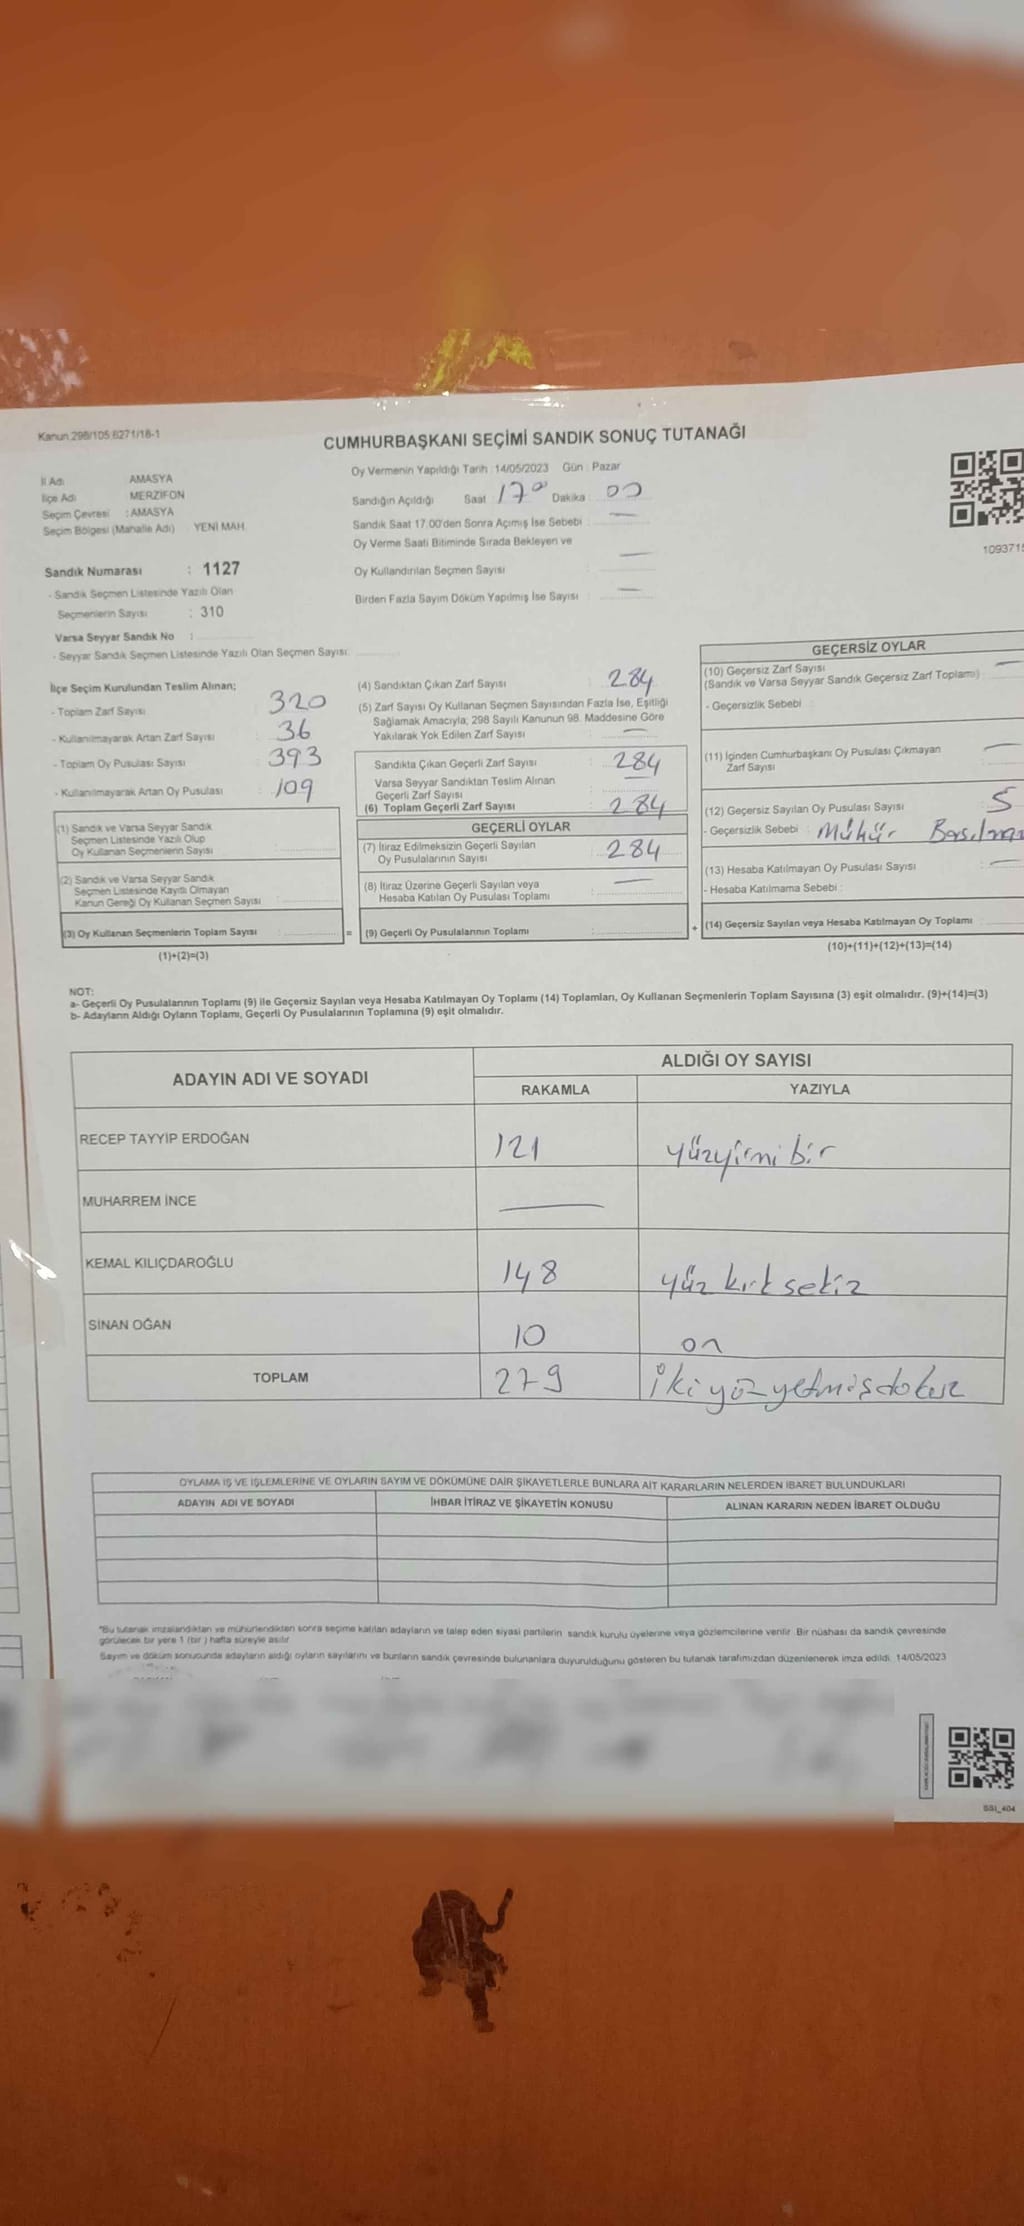 Kanun 298/105 6271/18-1
CUMHURBAŞKANI SEÇİMİ SANDIK SONUÇ TUTANAĞI
İl Adı AMASYA
İlçe Adı MERZİFON
Seçim Çevresi : AMASYA
Seçim Bölgesi (Mahalle Adı) YENİ MAH.
Sandık Numarası : 1127
- Sandık Seçmen Listesinde Yazılı Olan
Seçmenlerin Sayısı : 310
Varsa Seyyar Sandık No :
- Seyyar Sandık Seçmen Listesinde Yazılı Olan Seçmen Sayısı:
Oy Vermenin Yapıldığı Tarih : 14/05/2023 Gün : Pazar
Sandığın Açıldığı Saat 17 00 Dakika : 00
Sandık Saat 17.00'den Sonra Açımış İse Sebebi : —
Oy Verme Saati Bitiminde Sırada Bekleyen ve
Oy Kullandırılan Seçmen Sayısı —
Birden Fazla Sayım Döküm Yapılmış İse Sayısı : —
1093715
İlçe Seçim Kurulundan Teslim Alınan;
- Toplam Zarf Sayısı 320
- Kullanılmayarak Artan Zarf Sayısı : 36
- Toplam Oy Pusulası Sayısı : 393
- Kullanılmayarak Artan Oy Pusulası : 109
(1) Sandık ve Varsa Seyyar Sandık
Seçmen Listesinde Yazılı Olup
Oy Kullanan Seçmenlerin Sayısı
(2) Sandık ve Varsa Seyyar Sandık
Seçmen Listesinde Kayıtlı Olmayan
Kanun Gereği Oy Kullanan Seçmen Sayısı
(3) Oy Kullanan Seçmenlerin Toplam Sayısı :
(1)+(2)=(3)
(4) Sandıktan Çıkan Zarf Sayısı : 284
(5) Zarf Sayısı Oy Kullanan Seçmen Sayısından Fazla İse, Eşitliği
Sağlamak Amacıyla; 298 Sayılı Kanunun 98. Maddesine Göre
Yakılarak Yok Edilen Zarf Sayısı : —
Sandıkta Çıkan Geçerli Zarf Sayısı : 284
Varsa Seyyar Sandıktan Teslim Alınan
Geçerli Zarf Sayısı : —
(6) Toplam Geçerli Zarf Sayısı : 284
GEÇERLİ OYLAR
(7) İtiraz Edilmeksizin Geçerli Sayılan
Oy Pusulalarının Sayısı : 284
(8) İtiraz Üzerine Geçerli Sayılan veya
Hesaba Katılan Oy Pusulası Toplamı : —
= (9) Geçerli Oy Pusulalarının Toplamı :
GEÇERSİZ OYLAR
(10) Geçersiz Zarf Sayısı —
(Sandık ve Varsa Seyyar Sandık Geçersiz Zarf Toplamı)
- Geçersizlik Sebebi :
(11) İçinden Cumhurbaşkanı Oy Pusulası Çıkmayan
Zarf Sayısı —
(12) Geçersiz Sayılan Oy Pusulası Sayısı : 5
- Geçersizlik Sebebi : Mühür
(13) Hesaba Katılmayan Oy Pusulası Sayısı : —
- Hesaba Katılmama Sebebi :
+ (14) Geçersiz Sayılan veya Hesaba Katılmayan Oy Toplamı
(10)+(11)+(12)+(13)=(14)
NOT:
a- Geçerli Oy Pusulalarının Toplamı (9) ile Geçersiz Sayılan veya Hesaba Katılmayan Oy Toplamı (14) Toplamları, Oy Kullanan Seçmenlerin Toplam Sayısına (3) eşit olmalıdır. (9)+(14)=(3)
b- Adayların Aldığı Oyların Toplamı, Geçerli Oy Pusulalarının Toplamına (9) eşit olmalıdır.
ADAYIN ADI VE SOYADI ALDIĞI OY SAYISI
RAKAMLA YAZIYLA
RECEP TAYYİP ERDOĞAN 121 yüzyirmi bir
MUHARREM İNCE —
KEMAL KILIÇDAROĞLU 148 yüz kırk sekiz
SİNAN OĞAN 10 on
TOPLAM 279 iki yüz yetmiş dokuz
OYLAMA İŞ VE İŞLEMLERİNE VE OYLARIN SAYIM VE DÖKÜMÜNE DAİR ŞİKAYETLERLE BUNLARA AİT KARARLARIN NELERDEN İBARET BULUNDUKLARI
ADAYIN ADI VE SOYADI İHBAR İTİRAZ VE ŞİKAYETİN KONUSU ALINAN KARARIN NEDEN İBARET OLDUĞU
*Bu tutanak imzalandıktan ve mühürlendikten sonra seçime katılan adayların ve talep eden siyasi partilerin sandık kurulu üyelerine veya gözlemcilerine verilir. Bir nüshası da sandık çevresinde
görülecek bir yere 1 (bir ) hafta süreyle asılır
Sayım ve döküm sonucunda adayların aldığı oyların sayılarını ve bunların sandık çevresinde bulunanlara duyurulduğunu gösteren bu tutanak tarafımızdan düzenlenerek imza edildi. 14/05/2023
SSI_404